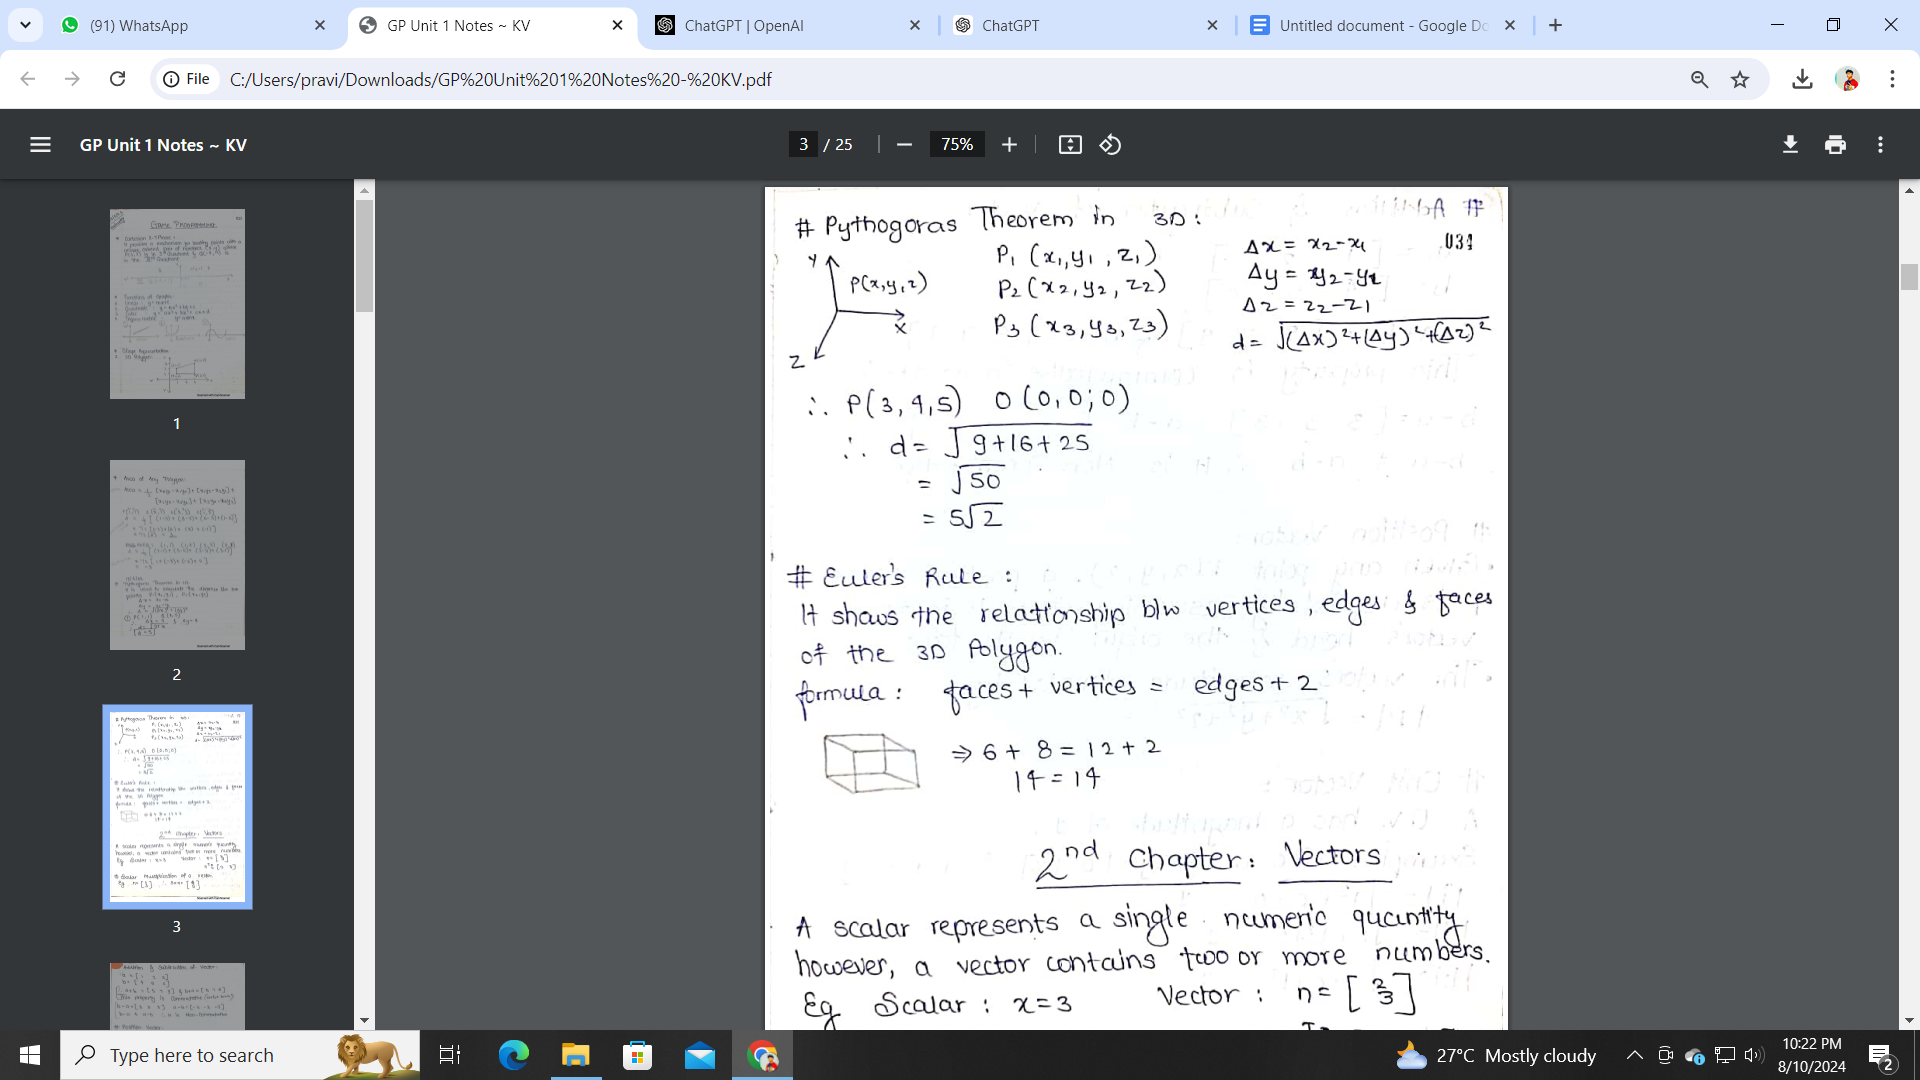 (91) WhatsApp
GP Unit 1 Notes ~ KV
ChatGPT | OpenAI
ChatGPT
Untitled document - Google Do
File
C:/Users/pravi/Downloads/GP%20Unit%201%20Notes%20-%20KV.pdf
GP Unit 1 Notes ~ KV
3 / 25
75%
1
2
3
# Pythogoras Theorem in 3D:
031
Y
X
Z
P(x,y,z)
P₁ (x₁,y₁,z₁)
P₂ (x₂,y₂,z₂)
P₃ (x₃,y₃,z₃)
Δx = x₂-x₁
Δy = y₂-y₁
Δz = z₂-z₁
d = √(Δx)²+(Δy)²+(Δz)²
∴ P(3,4,5) O(0,0,0)
∴ d = √9+16+25
= √50
= 5√2
# Euler's Rule :
It shows the relationship b/w vertices, edges & faces
of the 3D Polygon.
formula : faces + vertices = edges + 2
⇒ 6 + 8 = 12 + 2
14 = 14
2nd Chapter: Vectors
A scalar represents a single numeric quantity
however, a vector contains two or more numbers.
Eg Scalar : x=3 Vector : n = [2 3]
Type here to search
27°C Mostly cloudy
10:22 PM
8/10/2024
2